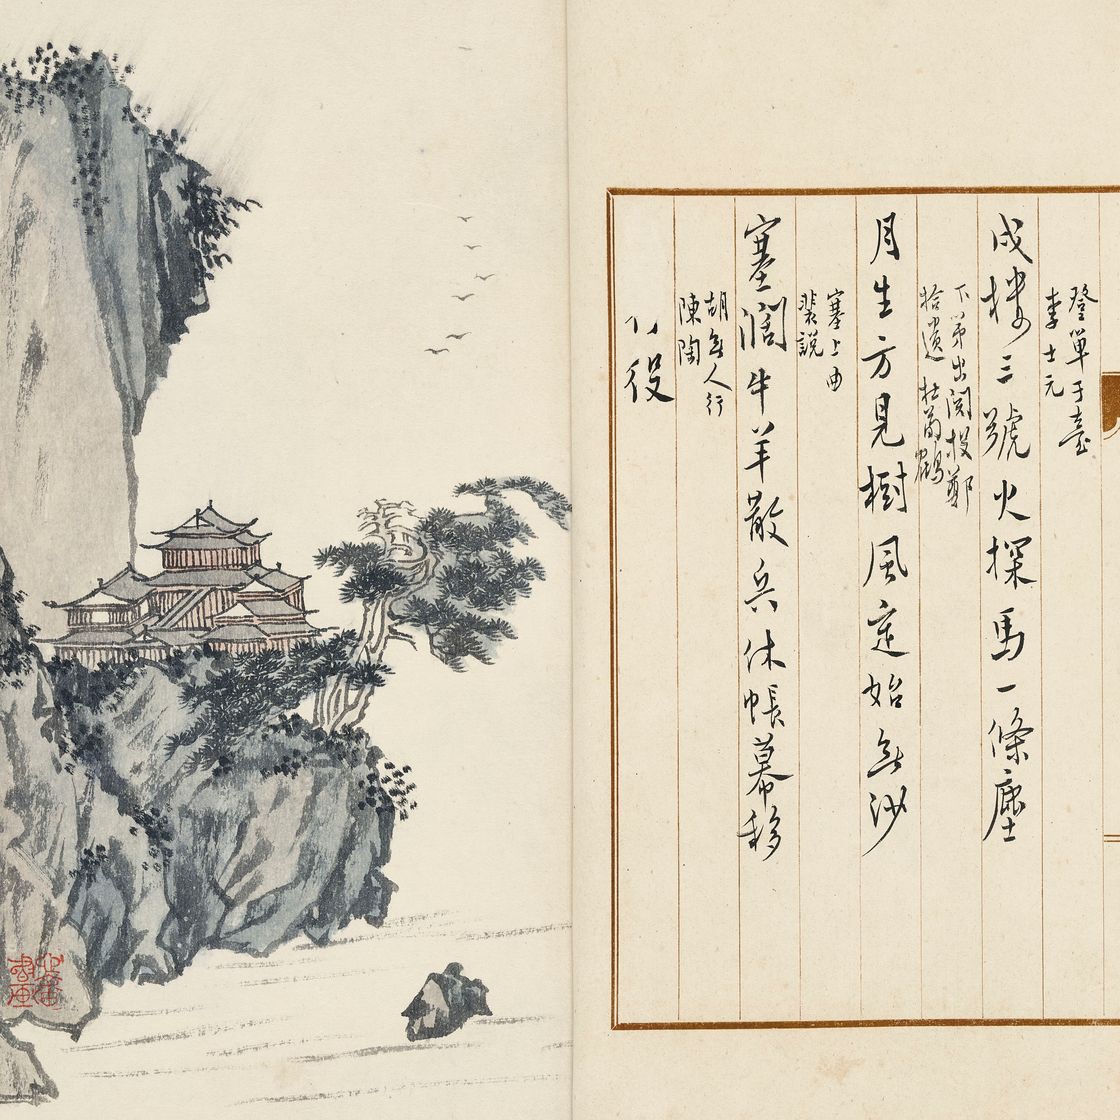 登單于臺
李士元
戍樓三號火探馬一條塵
下第出關投鄭
拾遺 杜荀鶴
月生方見樹風定始無沙
塞上曲
裴說
塞闊牛羊散兵休帳幕移
胡無人行
陳陶
役